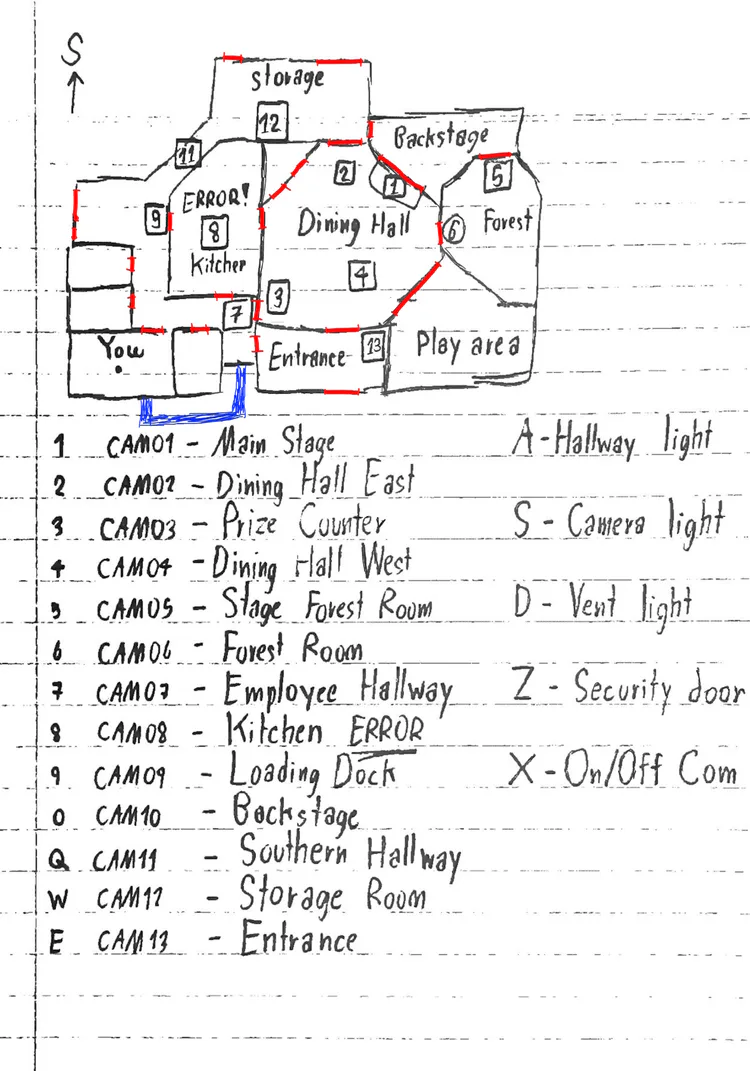 S
storage
12
Backstage
11
2
1
5
ERROR!
9
8
Dining Hall
6
Forest
Kitchen
4
3
7
You
Entrance
13
Play area
1 CAM01 - Main Stage
A - Hallway light
2 CAM02 - Dining Hall East
3 CAM03 - Prize Counter
S - Camera light
4 CAM04 - Dining Hall West
5 CAM05 - Stage Forest Room
D - Vent light
6 CAM06 - Forest Room
7 CAM07 - Employee Hallway
Z - Security door
8 CAM08 - Kitchen ERROR
9 CAM09 - Loading Dock
X - On/Off Com
0 CAM10 - Backstage
Q CAM11 - Southern Hallway
W CAM12 - Storage Room
E CAM13 - Entrance